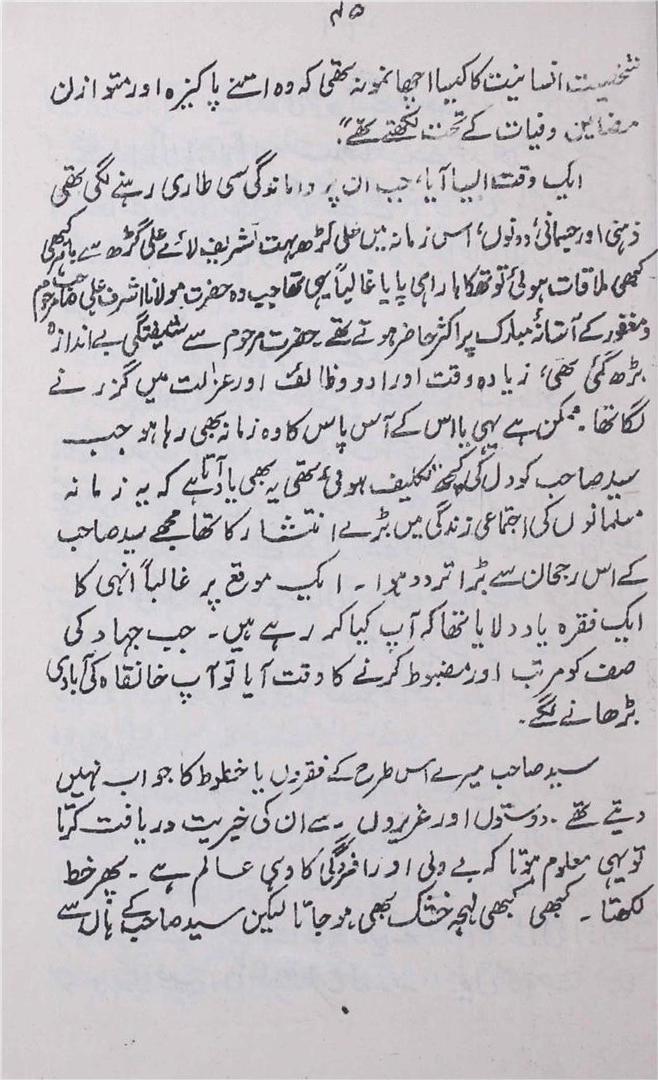 ۴۵
شخصیت انسانیت کا کیسا اچھا نمونہ تھی کہ وہ اتنے پاکیزہ اور متوازن
مضامین وفیات کے تحت لکھتے تھے"۔
ایک وقت ایسا آیا، جب ان پر واماندگی سی طاری رہنے لگی تھی
ذہنی اور جسمانی دونوں، اس زمانہ میں علی گڑھ بہت تشریف لائے علی گڑھ سے باہر کبھی
کبھی ملاقات ہوئی تو تھکا ہارا ہی پایا غالباً یہی تھا جب وہ حضرت مولانا اشرف علی صاحب مرحوم
و مغفور کے آستانۂ مبارک پر اکثر حاضر ہوتے تھے۔ حضرت مرحوم سے شیفتگی بے اندازہ
بڑھ گئی تھی، زیادہ وقت اوراد و وظائف اور عزلت میں گزرنے
لگا تھا۔ ممکن ہے یہی یا اس کے آس پاس کا وہ زمانہ بھی رہا ہو جب
سید صاحب کو دل کی کچھ تکلیف ہوئی تھی یہ بھی یاد آتا ہے کہ یہ زمانہ
مسلمانوں کی اجتماعی زندگی میں بڑے انتشار کا تھا مجھے سید صاحب
کے اس رجحان سے بڑا تردد ہوا۔ ایک موقع پر غالباً انہی کا
ایک فقرہ یاد دلایا تھا کہ آپ کیا کر رہے ہیں۔ جب جہاد کی
صف کو مرتب اور مضبوط کرنے کا وقت آیا تو آپ خانقاہ کی آبادی
بڑھانے لگے۔
سید صاحب میرے اس طرح کے فقروں یا خطوط کا جواب نہیں
دیتے تھے۔ دوستوں اور عزیزوں۔ سے ان کی خیریت دریافت کرتا
تو یہی معلوم ہوتا کہ بے دلی اور افسردگی کا وہی عالم ہے۔ پھر خط
لکھتا۔ کبھی کبھی لہجہ خشک بھی ہو جاتا لیکن سید صاحب کے ہاں سے